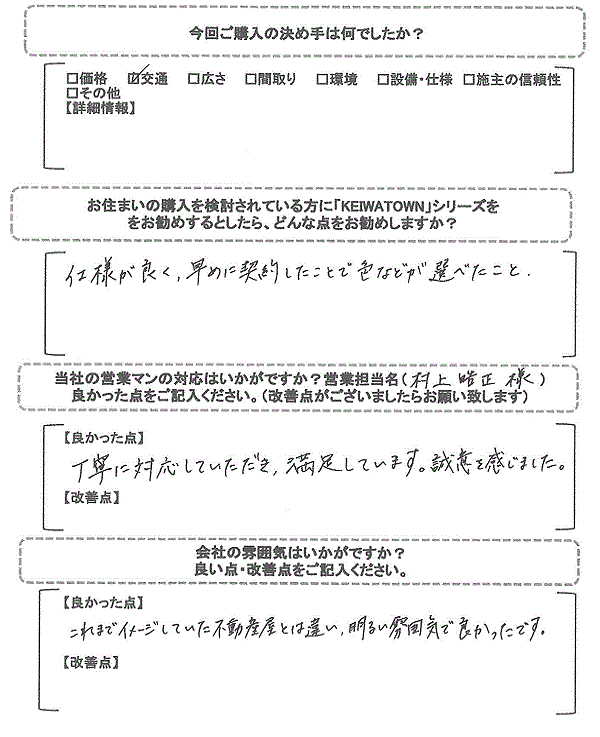 今回ご購入の決め手は何でしたか？
□価格 ☑交通 □広さ □間取り □環境 □設備・仕様 □施主の信頼性
□その他
【詳細情報】
お住まいの購入を検討されている方に「KEIWATOWN」シリーズを
をお勧めするとしたら、どんな点をお勧めしますか？
仕様が良く、早めに契約したことで色などが選べたこと.
当社の営業マンの対応はいかがですか？営業担当名（村上 晧正 様）
良かった点をご記入ください。（改善点がございましたらお願い致します）
【良かった点】
丁寧に対応していただき、満足しています。誠意を感じました。
【改善点】
会社の雰囲気はいかがですか？
良い点・改善点をご記入ください。
【良かった点】
これまでイメージしていた不動産屋とは違い、明るい雰囲気で良かったです。
【改善点】